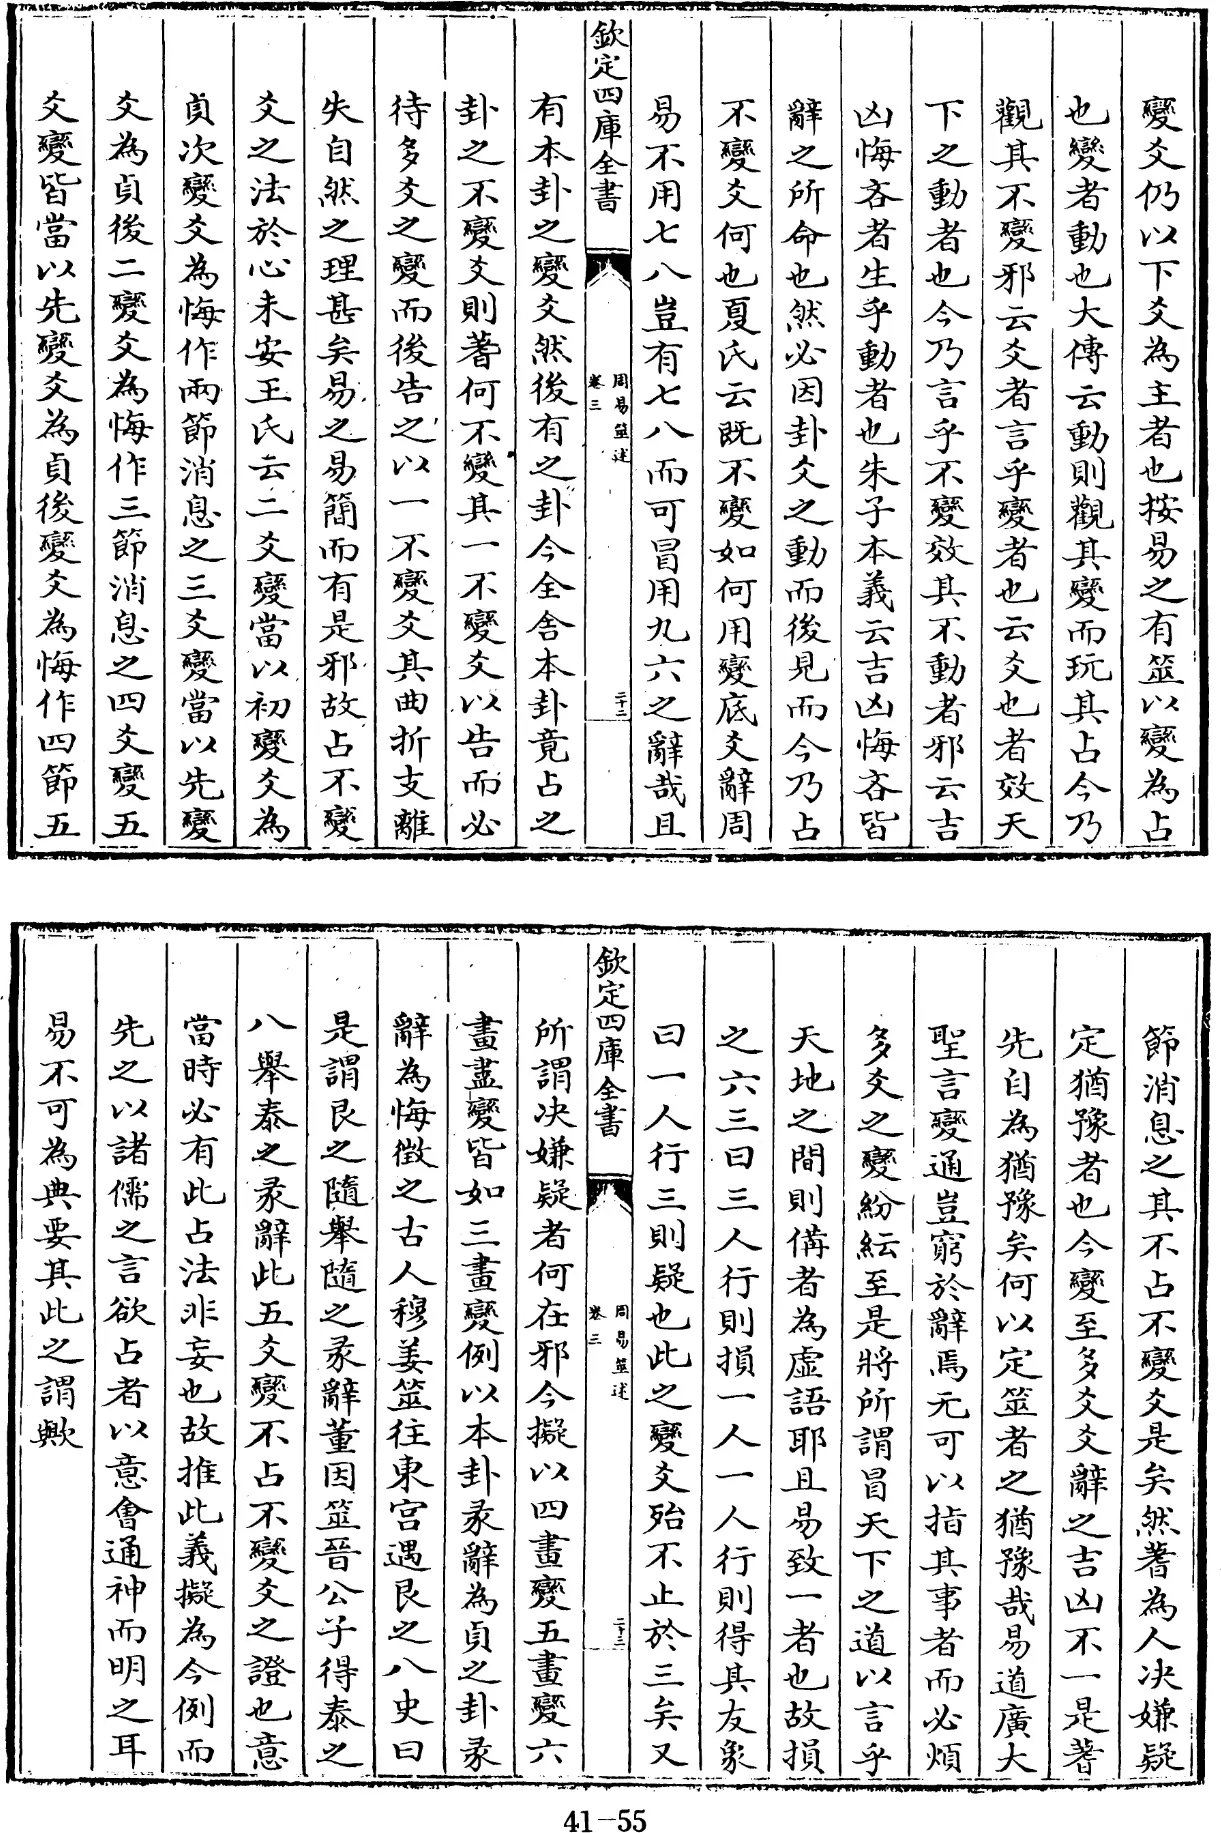 變爻仍以下爻為主者也按易之有筮以變為占
也變者動也大傳云動則觀其變而玩其占今乃
觀其不變邪云爻者言乎變者也云爻也者效天
下之動者也今乃言乎不變效其不動者邪云吉
凶悔吝者生乎動者也朱子本義云吉凶悔吝皆
辭之所命也然必因卦爻之動而後見而今乃占
不變爻何也夏氏云既不變如何用變底爻辭周
易不用七八豈有七八而可冒用九六之辭哉且
欽定四庫全書
周易筮述
卷三
二十二
有本卦之變爻然後有之卦今全舍本卦竟占之
卦之不變爻則蓍何不變其一不變爻以告而必
待多爻之變而後告之以一不變爻其曲折支離
失自然之理甚矣易之易簡而有是邪故占不變
爻之法於心未安王氏云二爻變當以初變爻為
貞次變爻為悔作兩節消息之三爻變當以先變
爻為貞後二變爻為悔作三節消息之四爻變五
爻變皆當以先變爻為貞後變爻為悔作四節五
節消息之其不占不變爻是矣然蓍為人决嫌疑
定猶豫者也今變至多爻爻辭之吉凶不一是蓍
先自為猶豫矣何以定筮者之猶豫哉易道廣大
聖言變通豈窮於辭焉无可以指其事者而必煩
多爻之變紛紜至是將所謂冒天下之道以言乎
天地之間則備者為虛語耶且易致一者也故損
之六三曰三人行則損一人一人行則得其友象
曰一人行三則疑也此之變爻殆不止於三矣又
欽定四庫全書
周易筮述
卷三
二十三
所謂决嫌疑者何在邪今擬以四畫變五畫變六
畫盡變皆如三畫變例以本卦彖辭為貞之卦彖
辭為悔徵之古人穆姜筮往東宮遇艮之八史曰
是謂艮之隨舉隨之彖辭董因筮晉公子得泰之
八舉泰之彖辭此五爻變不占不變爻之證也意
當時必有此占法非妄也故推此義擬為今例而
先之以諸儒之言欲占者以意會通神而明之耳
易不可為典要其此之謂歟
41-55